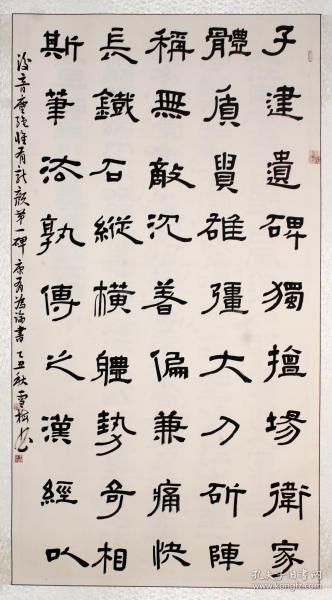 子建遺碑獨擅場衛家
體質實雄彊大刀斫陣
稱無敵沉著偏兼痛快
長鐵石縱橫軆勢奇相
斯筆法孰傳之漢經以
後音塵絕惟有龍顏第一碑 康有為論書 乙丑秋 雪梅書
孔夫子旧书网